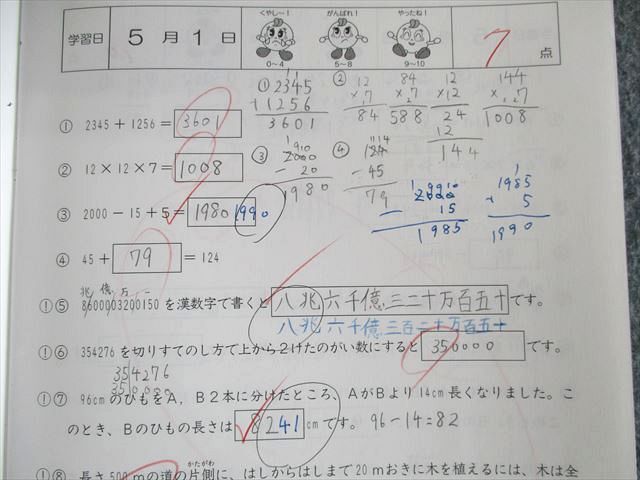 学習日 5月1日 くやし〜！ 0〜4 がんばれ！ 5〜8 やったね！ 9〜10 7点
① 2345 + 1256 = 3601
② 12 × 12 × 7 = 1008
③ 2000 − 15 + 5 = 1980 1990
④ 45 + 79 = 124
① 2345 + 1256 3601
② 12 × 7 84
84 × 7 588
12 × 12 24 12 144
144 × 7 1008
③ 2000 − 20 1980
④ 124 − 45 79
2000 − 15 1985
1985 + 5 1990
兆 億 万 一
①⑤ 8600003200150を漢数字で書くと 八兆六千億三二十万百五十 です。
八兆六千億三百二十万百五十
①⑥ 354276を切りすてのし方で上から2けたのがい数にすると 350000 です。
354276
350000
①⑦ 96cmのひもをA，B2本に分けたところ，AがBより14cm長くなりました。こ
のとき，Bのひもの長さは 82 41 cmです。 96−14=82
かたがわ
①⑧ 長さ500mの道の片側に，はしからはしまで20mおきに木を植えるには，木は全